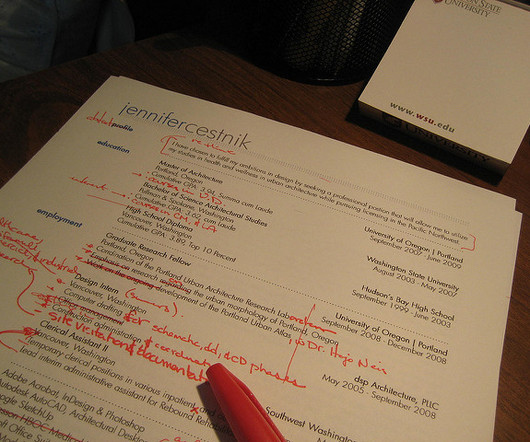 UNIVERSITY
www.wsu.edu
UNIVERSITY
jennifercestnik
profile
I have chosen to fulfill my ambitions in design by seeking a professional position that will allow me to utilize
my studies in health and wellness in urban architecture while pursuing licensing in the Pacific Northwest.
education
Master of Architecture
University of Oregon | Portland
Portland, Oregon
September 2007 - June 2009
Cumulative GPA: 3.94, Summa cum Laude
Bachelor of Science Architectural Studies
Washington State University
Pullman & Spokane, Washington
August 2003 - May 2007
Cumulative GPA: 3.62 Cum Laude
minors in CM, & LA
High School Diploma
Hudson's Bay High School
Vancouver, Washington
September 1999 - June 2003
Cumulative GPA: 3.89, Top 10 Percent
employment
Graduate Research Fellow
University of Oregon | Portland
Portland, Oregon
September 2008 - December 2008
Continuation of the Portland Urban Architecture Research Laboratory
Emphasis on research regarding the urban morphology of Portland, Oregon
Work on the ongoing development of the Portland Urban Atlas,
Dr. Hajo Neis
Design Intern
dsp Architecture, PLLC
Vancouver, Washington
May 2005 - September 2008
Computer drafting
for schematic, dd, & CD phases
Construction administration & coordination
site visitation & documentation
Clerical Assistant
Southwest Washington
Vancouver, Washington
Temporary clerical positions in various inpatient and
lead interim administrative assistant for Rebound
Adobe Acrobat, InDesign & Photoshop
Autodesk AutoCAD, Architectural Desktop
Google SketchUp
Office